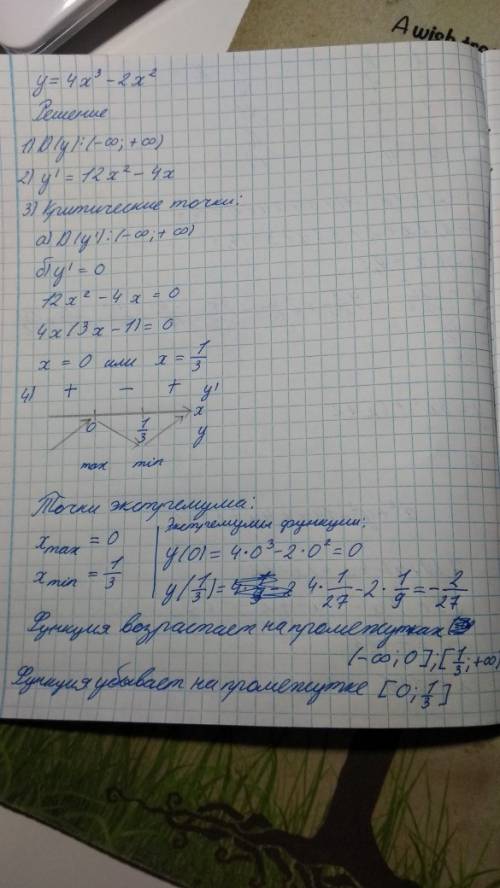 A wish tree
y = 4x³ - 2x²
Решение
1) D(y): (-∞; +∞)
2) y' = 12x² - 4x
3) Критические точки:
а) D(y'): (-∞; +∞)
б) y' = 0
12x² - 4x = 0
4x(3x - 1) = 0
x = 0 или x = 1/3
4) + - + y'
0 1/3 x
y
max min
Точки экстремума:
x max = 0
x min = 1/3
Экстремумы функции:
y(0) = 4·0³ - 2·0² = 0
y(1/3) = 4·1/27 - 2·1/9 = -2/27
Функция возрастает на промежутках
(-∞; 0]; [1/3; +∞)
Функция убывает на промежутке [0; 1/3]